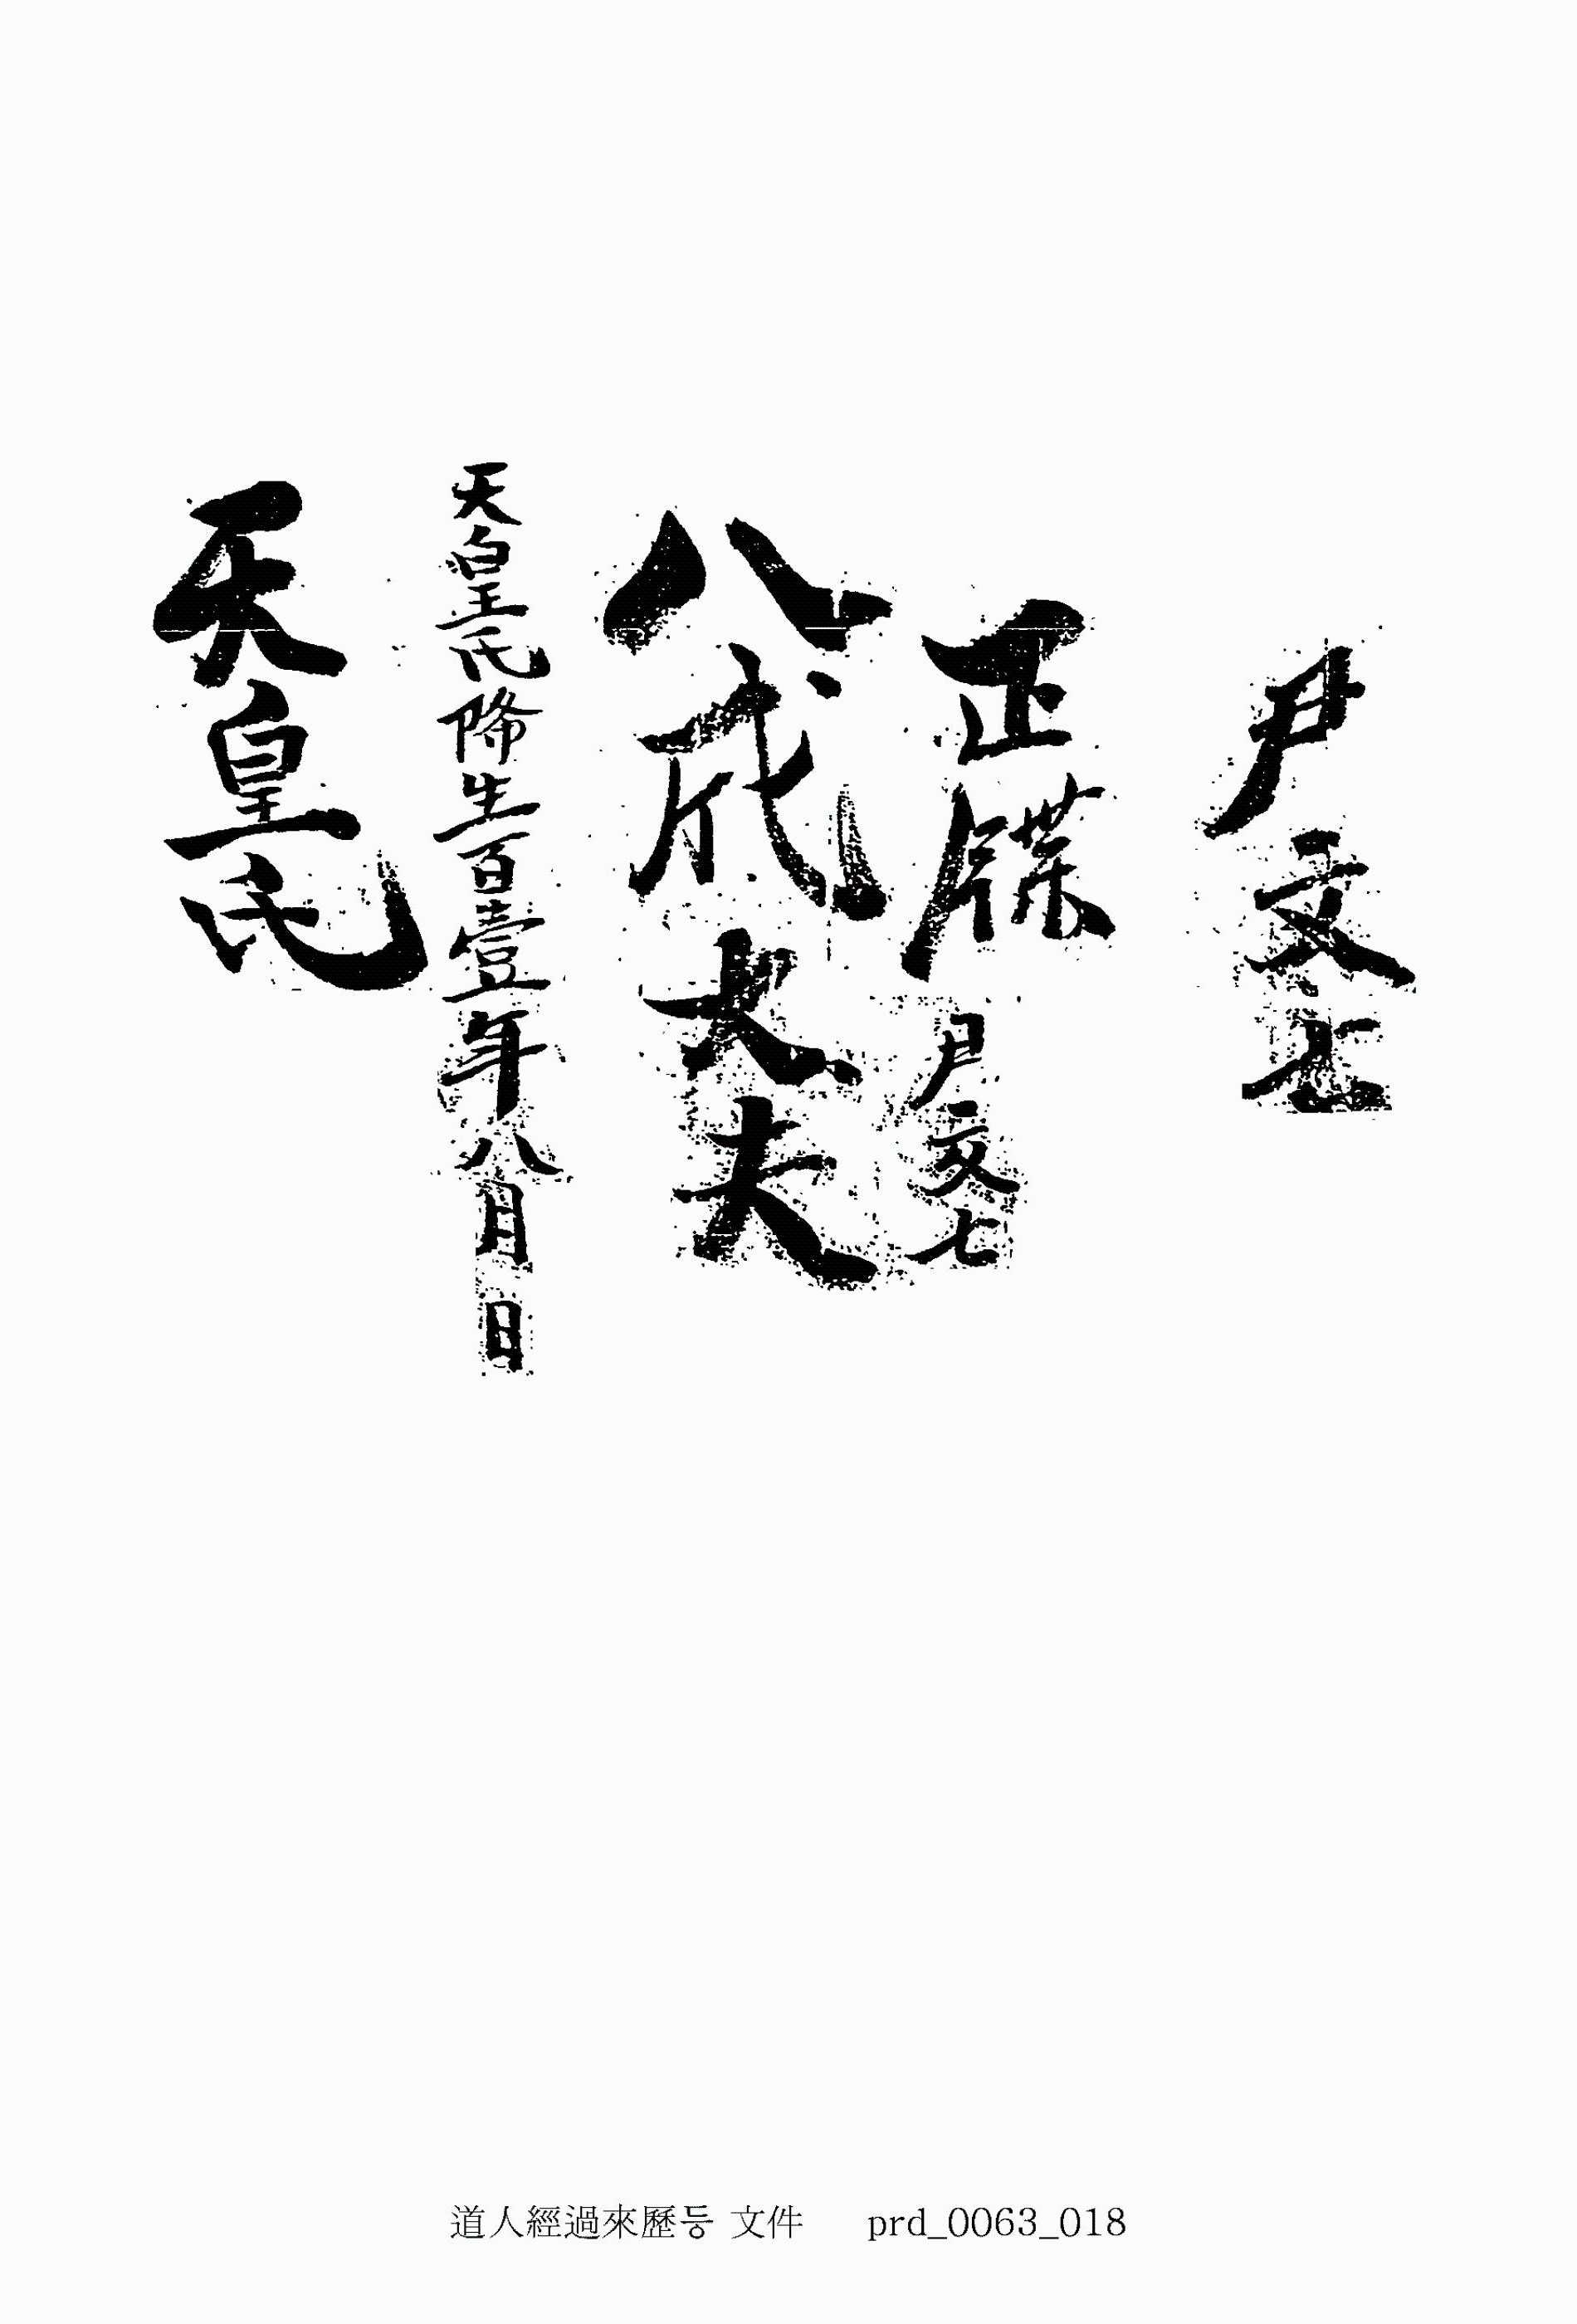 尹文七
正牒 尹文七
八成大夫
天皇氏降生百壹年八月 日
天皇氏
道人經過來歷등 文件 prd_0063_018